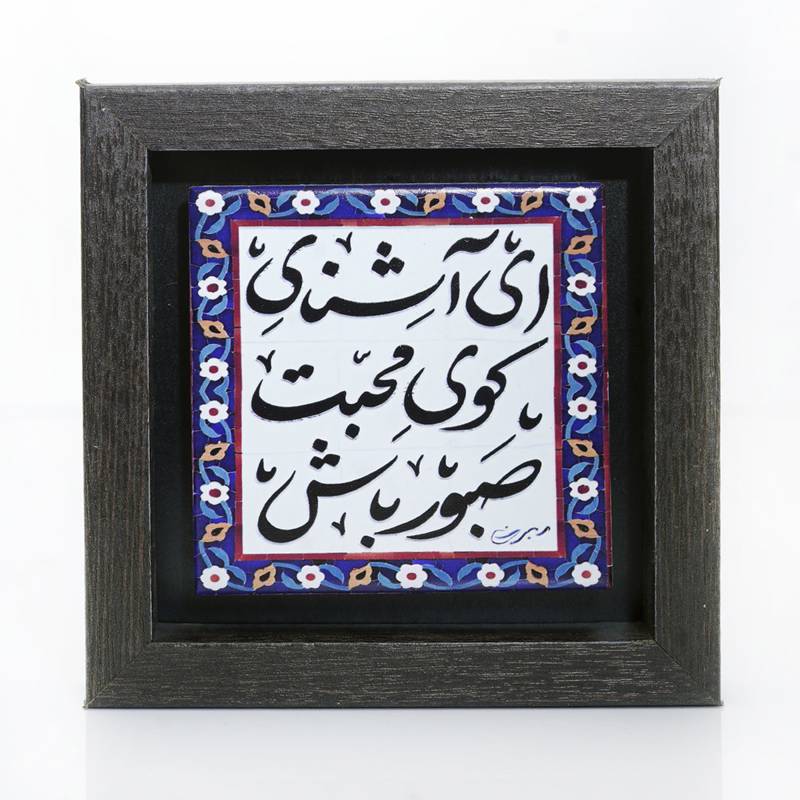 ای آشنایِ
کویِ محبّت
صبور باش